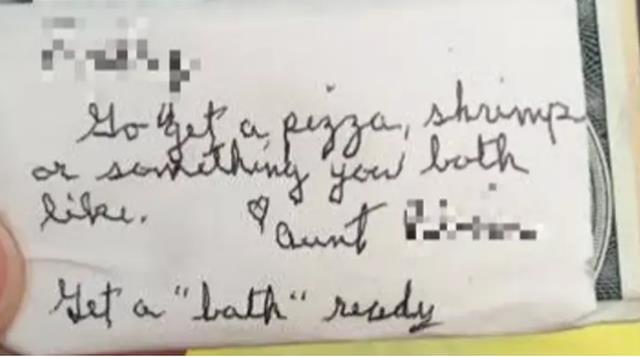 Go get a pizza, shrimp
or something you both
like. ♡ Aunt
Get a "bath" ready